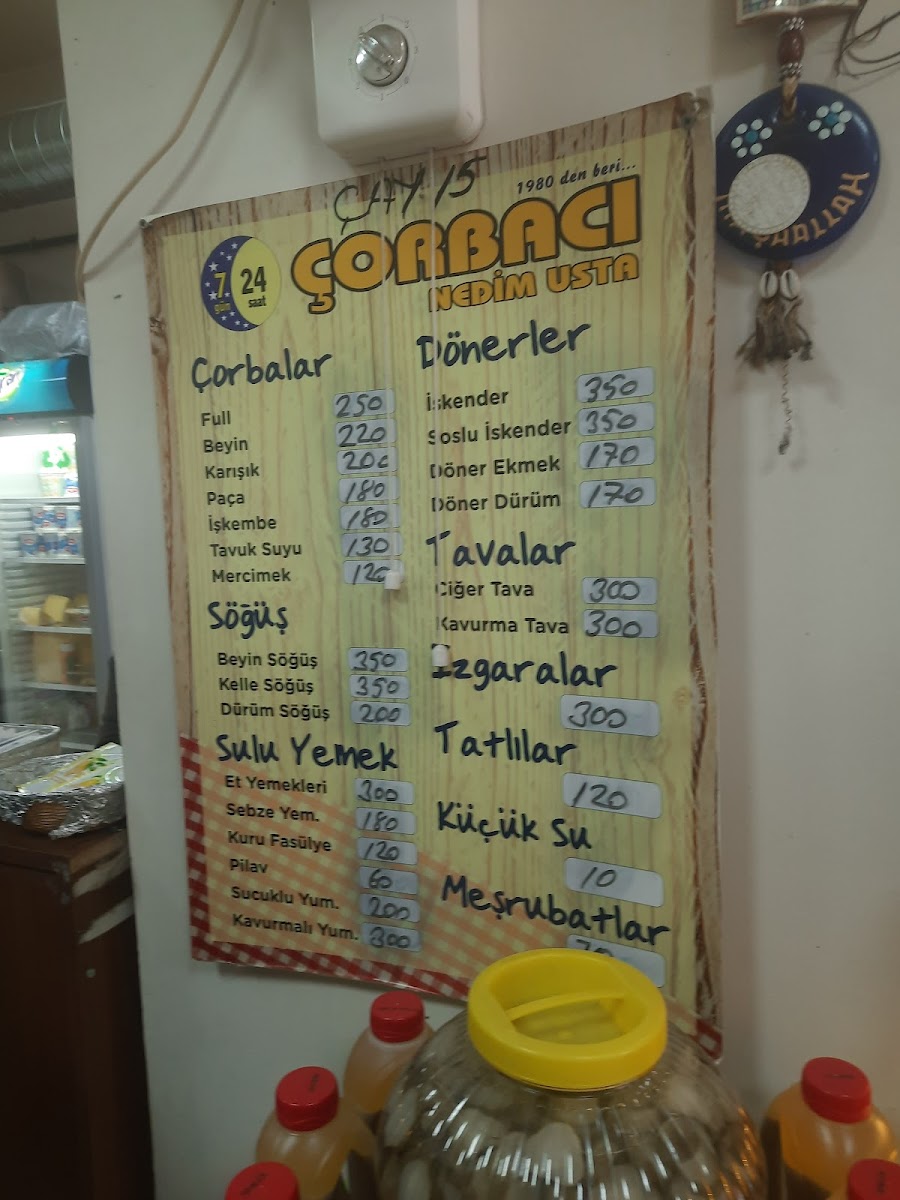 ÇAY 15
1980 den beri...
ÇORBACI
NEDİM USTA
7 gün 24 saat
Çorbalar
Full 250
Beyin 220
Karışık 200
Paça 180
İşkembe 180
Tavuk Suyu 130
Mercimek 120
Söğüş
Beyin Söğüş 350
Kelle Söğüş 350
Dürüm Söğüş 200
Sulu Yemek
Et Yemekleri 300
Sebze Yem. 180
Kuru Fasülye 120
Pilav 60
Sucuklu Yum. 200
Kavurmalı Yum. 300
Dönerler
İskender 350
Soslu İskender 350
Döner Ekmek 170
Döner Dürüm 170
Tavalar
Ciğer Tava 300
Kavurma Tava 300
Izgaralar
300
Tatlılar
120
Küçük Su
10
Meşrubatlar